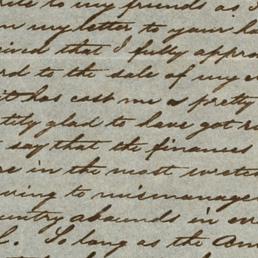 to my friends as
my letter to your
that I fully appro
rd to the sale of my
it has cost me a pretty
tily glad to have got
say that the finances
e in the most
wing to mismanage
untry abounds in
So long as the Am